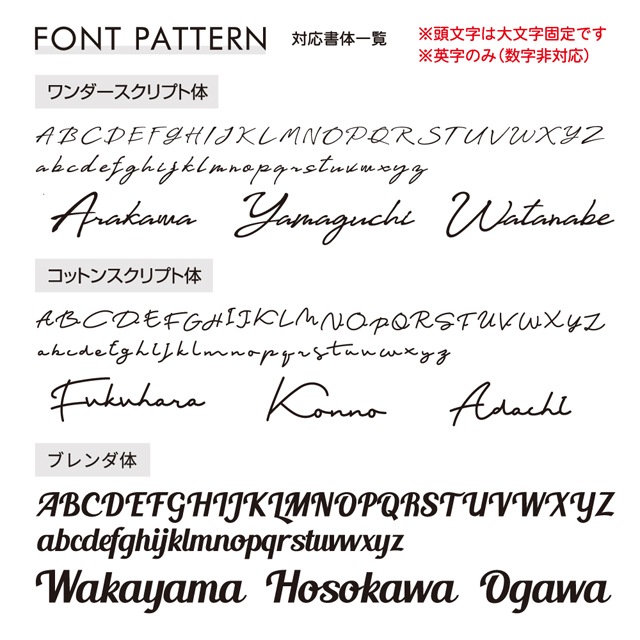 FONT PATTERN 対応書体一覧
※頭文字は大文字固定です
※英字のみ（数字非対応）
ワンダースクリプト体
ABCDEFGHIJKLMNOPQRSTUVWXYZ
abcdefghijklmnopqrstuvwxyz
Arakawa Yamaguchi Watanabe
コットンスクリプト体
ABCDEFGHIJKLMNOPQRSTUVWXYZ
abcdefghijklmnopqrstuvwxyz
Fukuhara Konno Adachi
ブレンダ体
ABCDEFGHIJKLMNOPQRSTUVWXYZ
abcdefghijklmnopqrstuvwxyz
Wakayama Hosokawa Ogawa